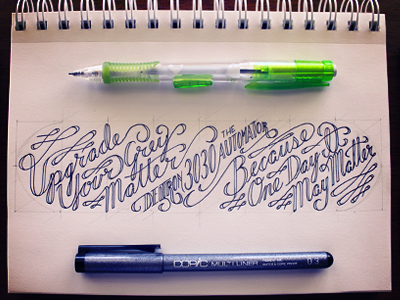 Upgrade
Your Grey
Matter
DELTRON 3030
THE
AUTOMATOR
Because
One Day It
May Matter
COPIC MULTILINER
0.3